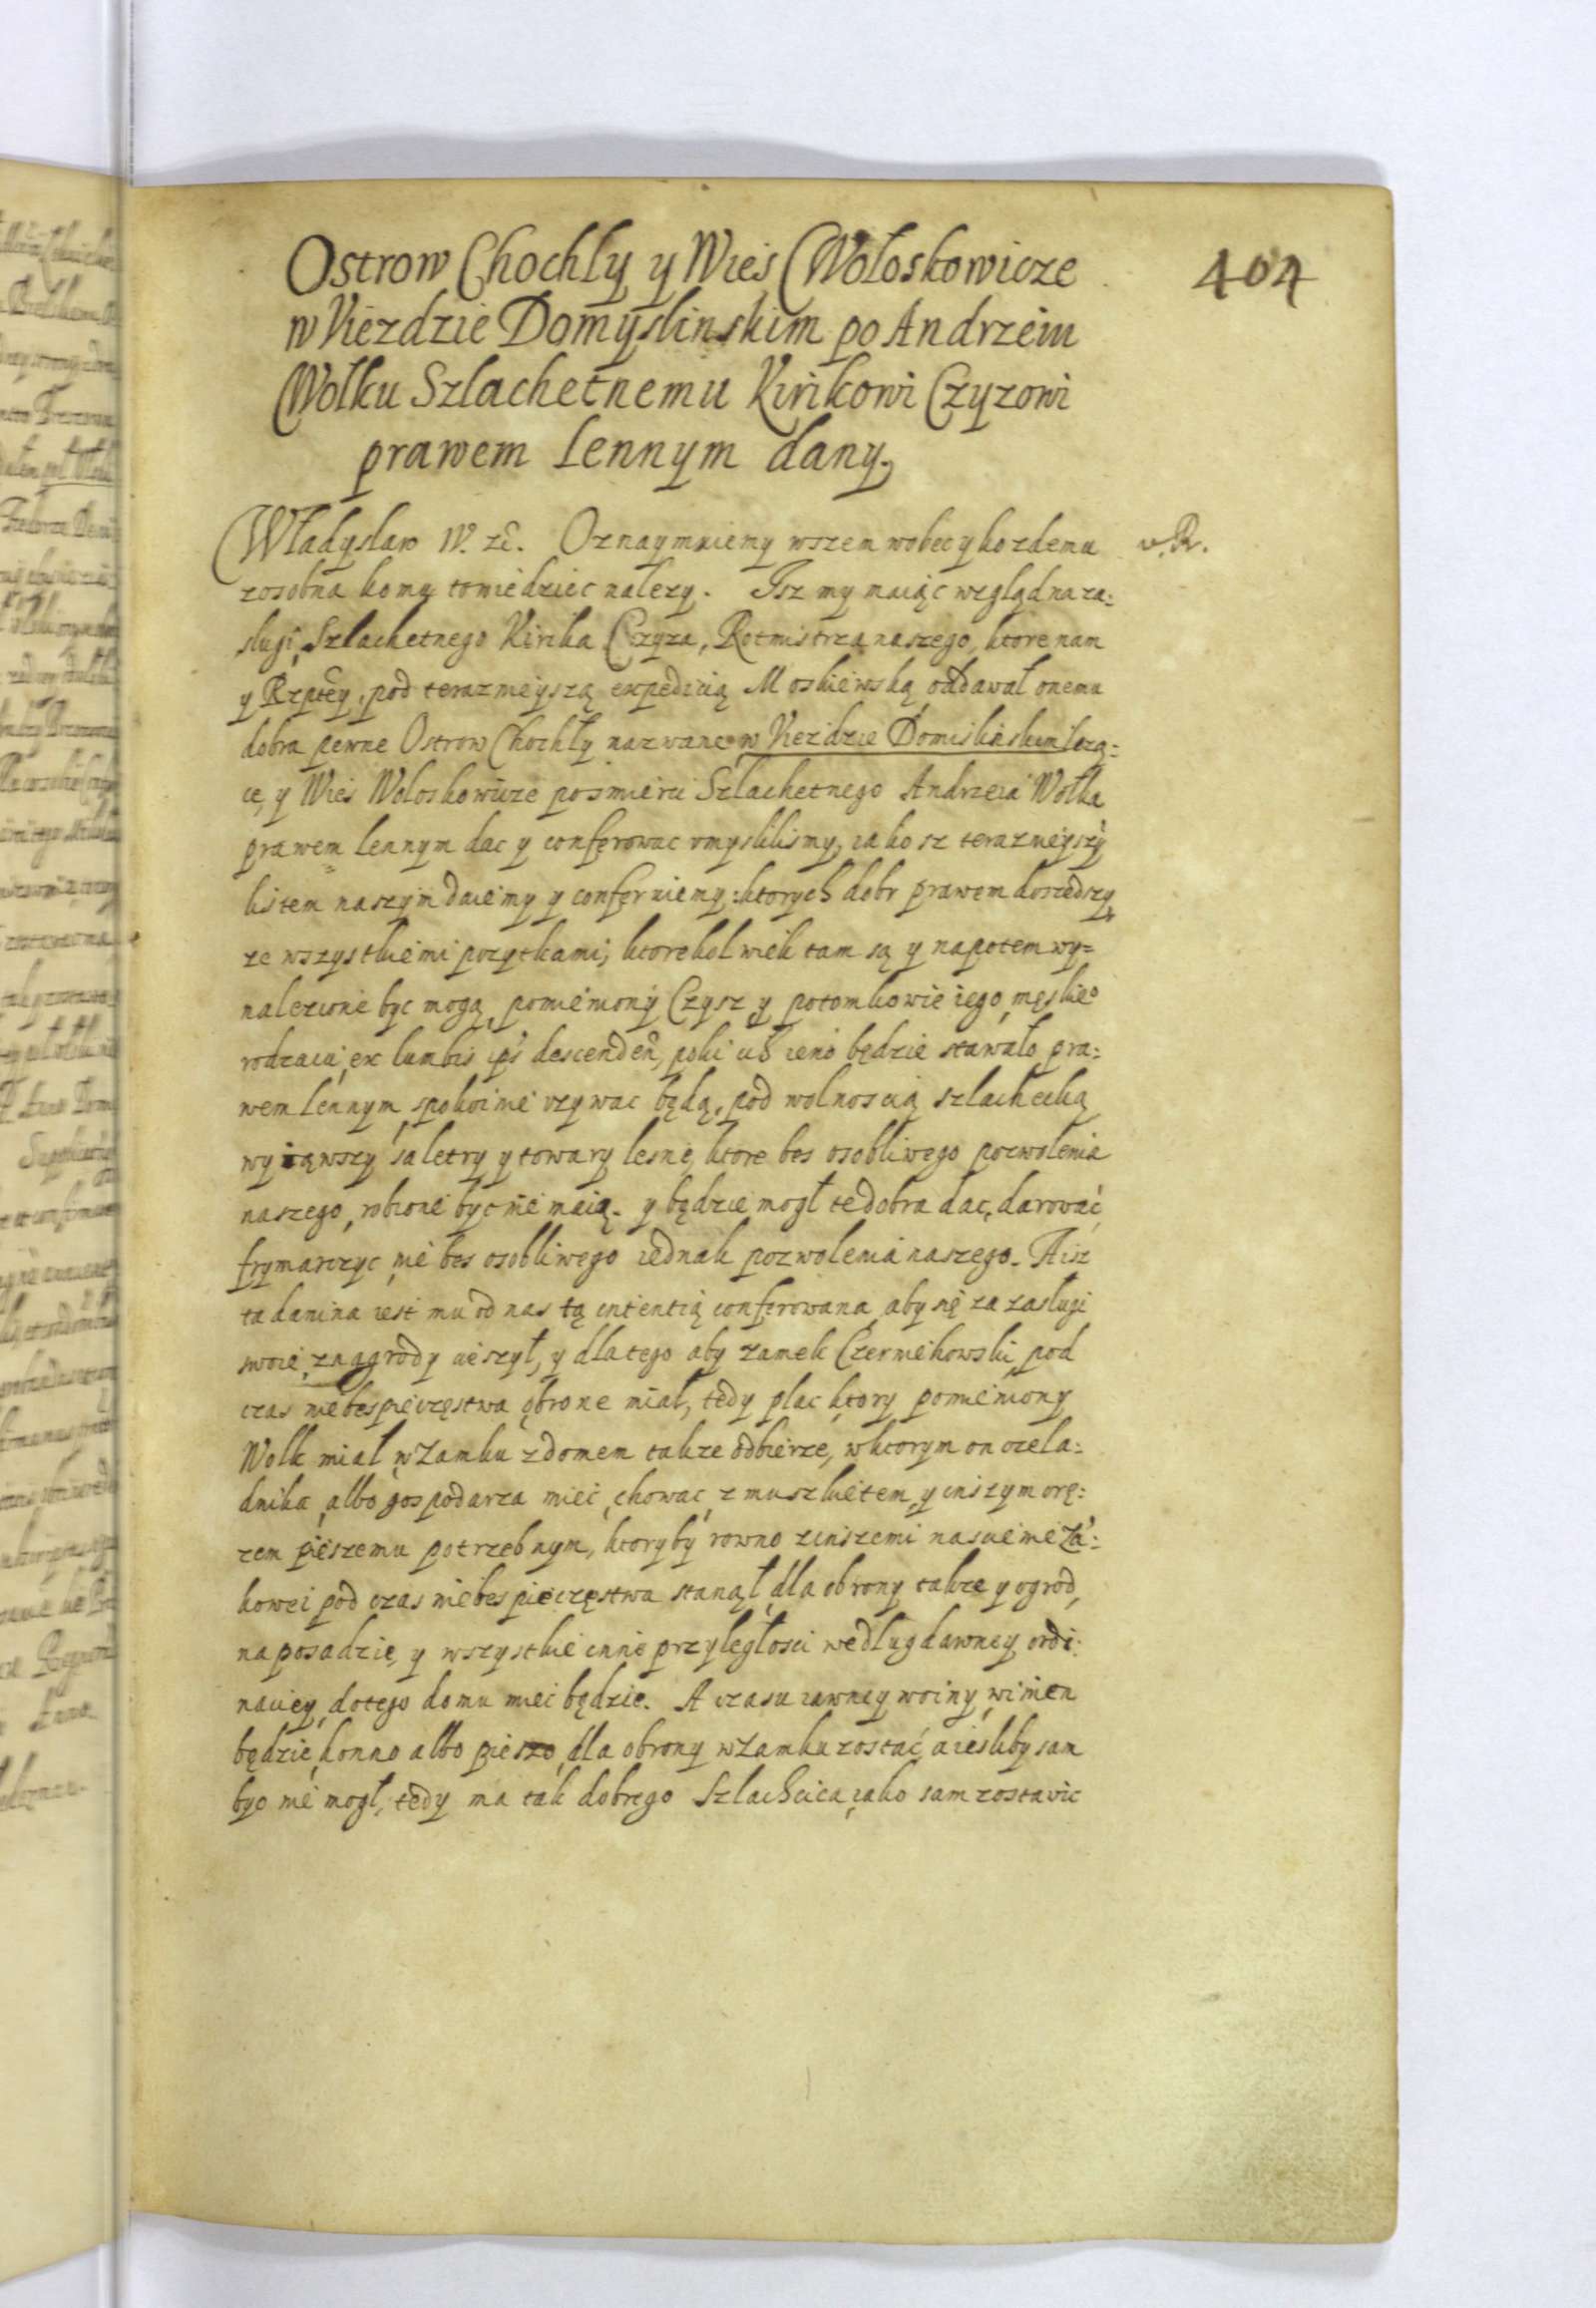 404
Ostrow Chochły y Wies Wołoskowicze
w Uiezdzie Domyslinskim po Andrzeiu
Wołku Szlachetnemu Kirikowi Czyzowi
prawem Lennym dany.
Władysław IV. etc. Oznaymuiemy wszem wobec y kozdemu v. R.
zosobna komu to wiedziec nalezy. Isz my maiąc wzgląd na za=
slugi, Szlachetnego Kirika Czyza, Rotmistrza naszego, ktore nam
y Rzptey, pod terazniejszą expedicią Moskiewską oddawał onemu
dobra pewne Ostrow Chochły nazwane w Uiezdzie Domislinskim lezą=
ce, y Wies Woloskowicze po smierci Szlachetnego Andrzeia Wołka
prawem lennym dac y conferowac umyslilismy, iakosz terazneyszy
listem naszym daiemy y conferuiemy: ktorych dobr prawem doszedszy
ze wszystkiemi pozytkami, ktorekolwiek tam są y napotem wy=
nalezione byc mogą, pomieniony Czysz y potomkowie iego, męskie°
rodzaiu, ex lumbis ips descenden, poki ich ieno będzie stawało pra=
wem lennym spokoinie uzywac będą, pod wolnoscią szlachecką
wyiąwszy saletry y towary lesne, ktore bes osobliwego pozwolenia
naszego, robione byc nie maią. y będzie mogł te dobra dac, darować
frymarczyc, nie bes osobliwego iednak pozwolenia naszego. A isz
ta danina iest mu od nas tą intentią conferowana aby się za zasługi
swoie, znagrody cieszył, y dlatego aby zamek Czerniekowski pod
czas niebespieczęstwa obrone miał, tedy plac ktory pomieniony
Wolk miał w Zamku z domem takze odbierze, w ktorym on czela=
dnika, albo gospodarza miec, chowac, z muszkietem, y inszym orę=
zem pieszemu potrzebnym, ktoryby rowno z inszemi na scienie Zá=
kowei pod czas niebespieczęstwa stanął, dla obrony takze y ogrod,
na posadzie, y wszystkie inne przyległosci według dawney ordi=
naciey, do tego domu miec będzie. A czasu iawney woiny, winien
będzie, konno albo pieszo, dla obrony w Zamku zostać, a iesliby sam
byc nie mogł, tedy ma tak dobrego Szlachcica, iako sam zostawic